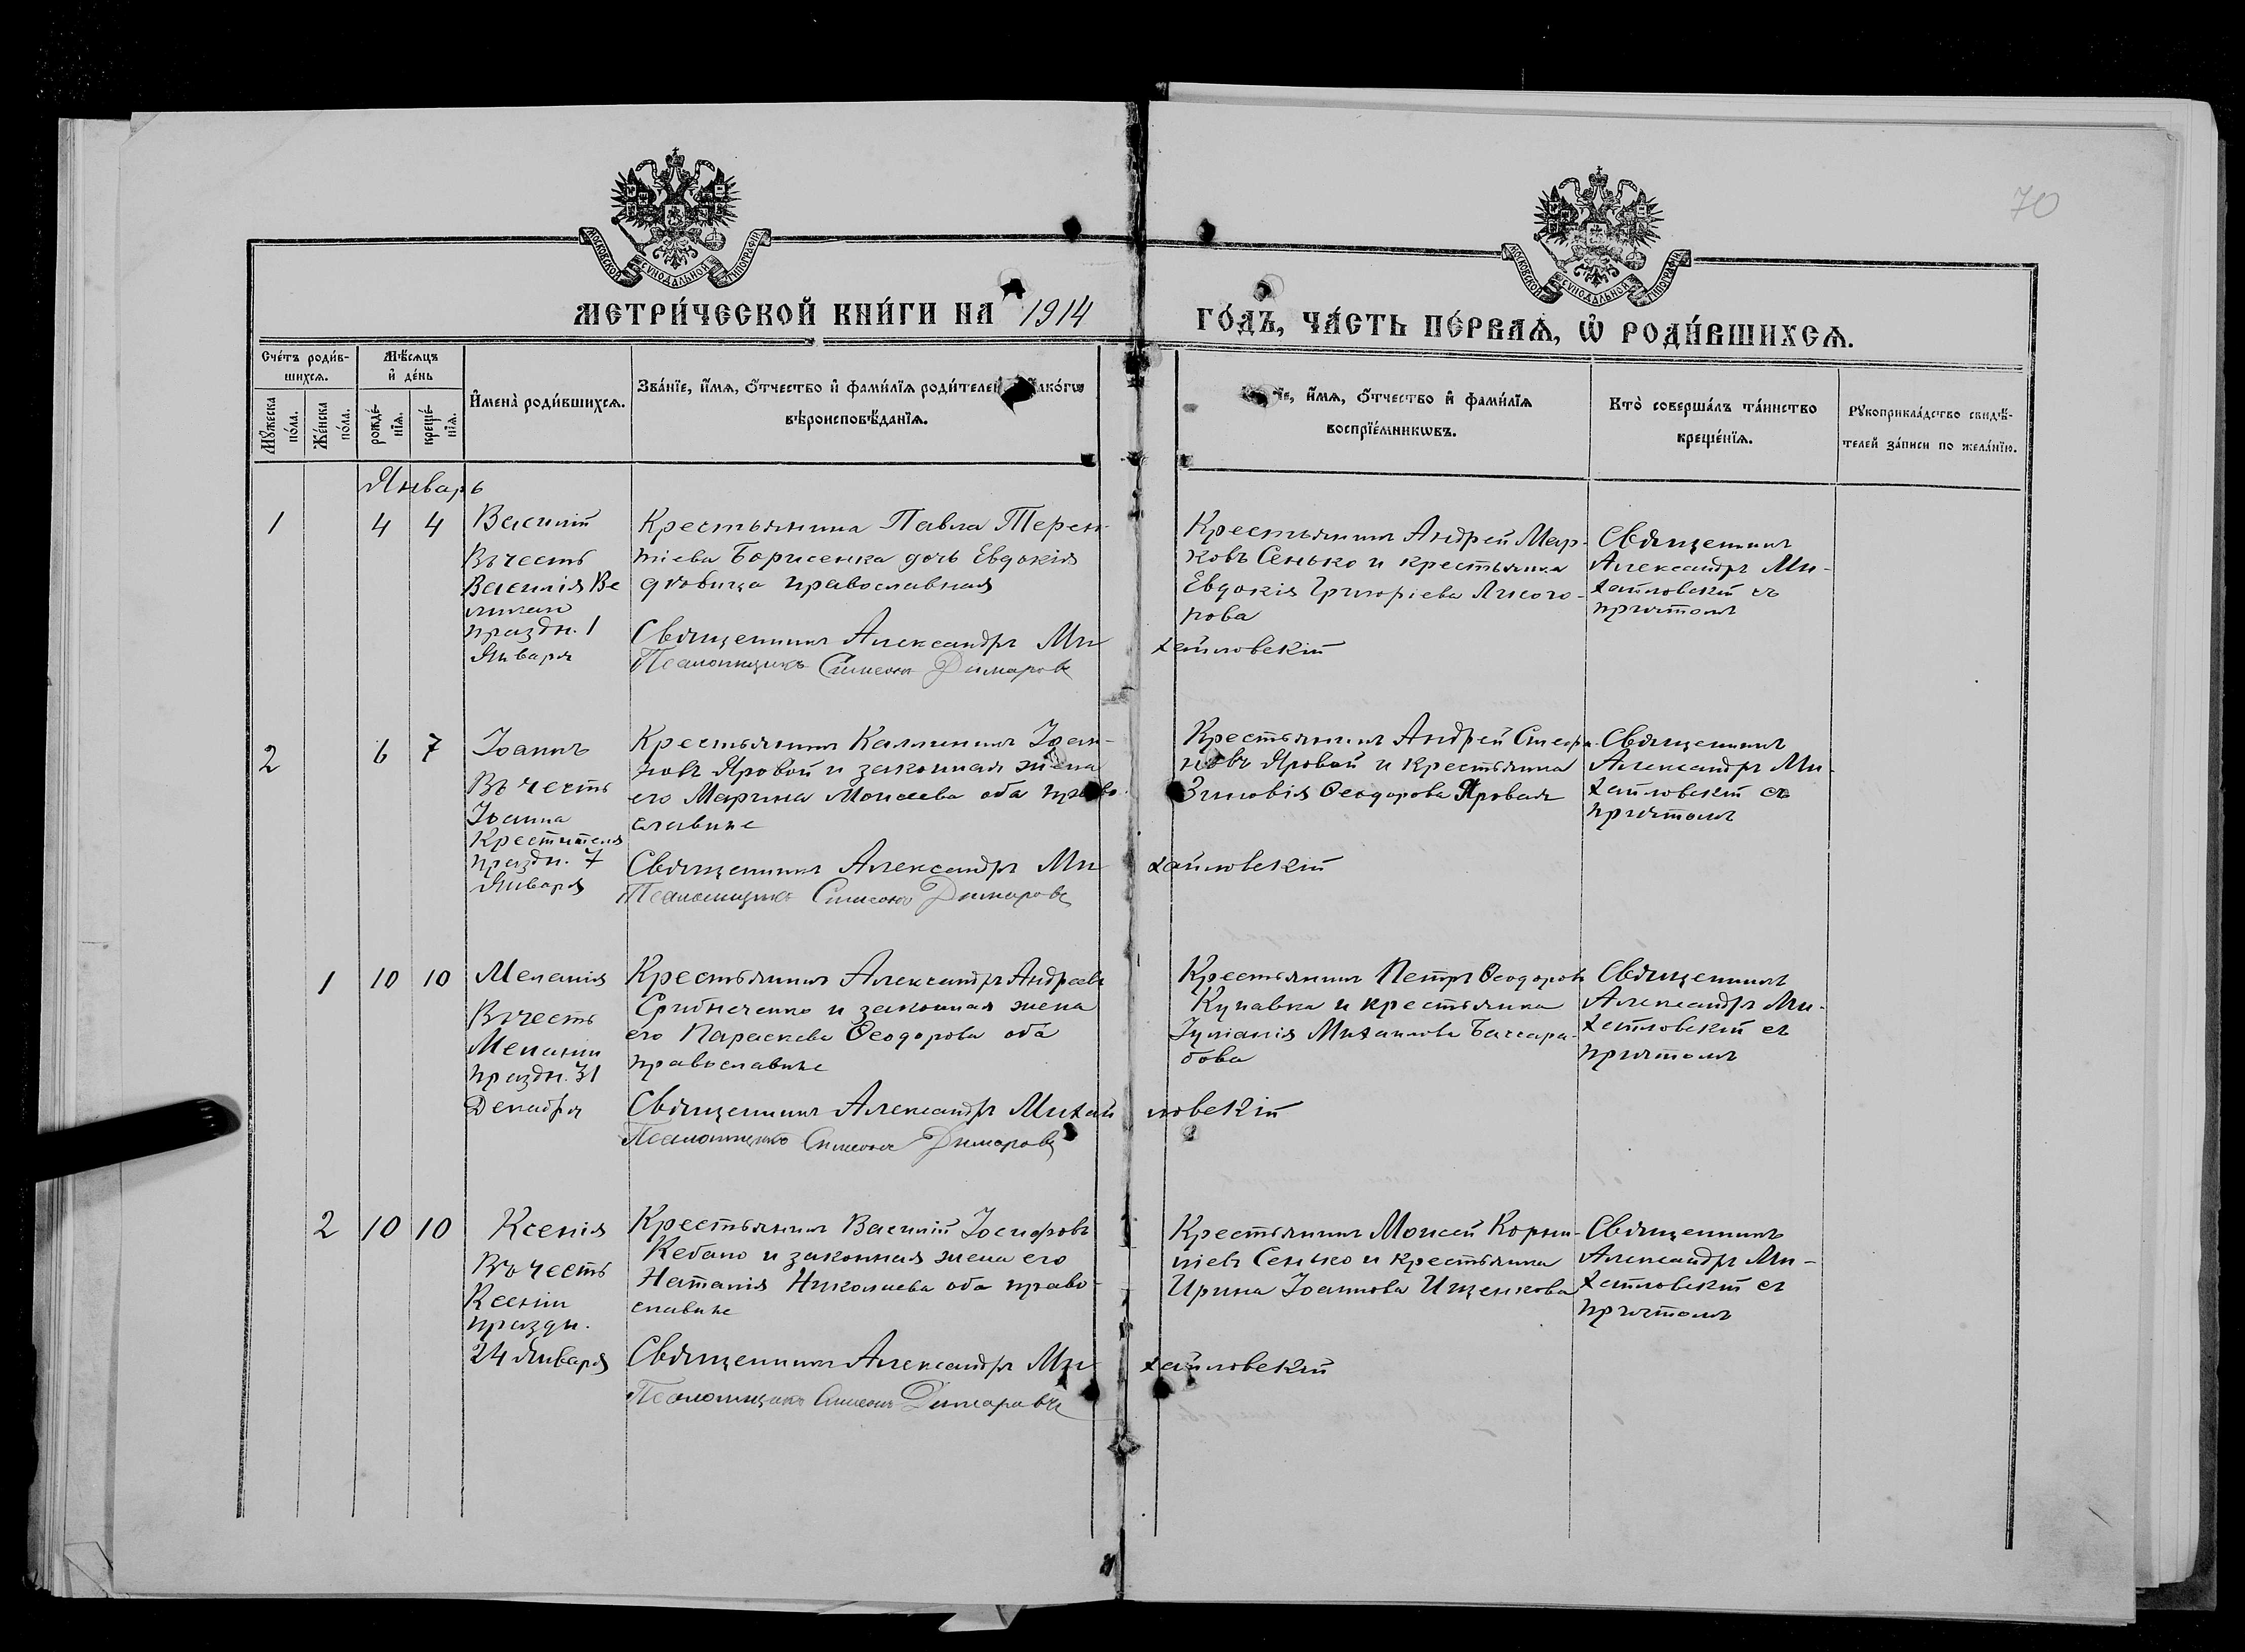 70
МОСКОВСКОЙ СУНОДАЛЬНОЙ ТИПОГРАФІИ
МОСКОВСКОЙ СУНОДАЛЬНОЙ ТИПОГРАФІИ
МЕТРИ́ЧЕСКОЙ КНИ́ГИ НА 1914
ГО́ДЪ, ЧА́СТЬ ПЕ́РВАѦ, Ѡ҆ РОДИ́ВШИХСѦ.
Сче́тъ роди́в-
шихсѧ.
Мꙋ́жеска по́ла.
Же́нска по́ла.
Мѣ́сѧцъ
и҆ де́нь
рожде́-
нїѧ.
креще́-
нїѧ.
И҆мена̀ роди́вшихсѧ.
Зва́нїе, и҆́мѧ, ѻ҆́тчество и҆ фами́лїѧ роди́телей
вѣроисповѣ́данїѧ.
и҆́мѧ, ѻ҆́тчество и҆ фами́лїѧ
воспрїе́мникѡвъ.
Кто̀ соверша́лъ та́инство
креще́нїѧ.
Рꙋкоприкла́дство свидѣ́-
телей за́писи по жела́нїю.
Январь
1 4 4 Василій
Въ честь
Василія Ве
ликаго
праздн. 1
Января
Крестьянина Павла Терен-
тіева Борисенка дочь Евдокія
дѣвица православная
Священникъ Александръ Ми
хайловскій
Псаломщикъ Симеонъ Димаровъ
Крестьянинъ Андрей Мар-
ковъ Сенько и крестьянка
Евдокія Григоріева Лисого-
рова
Священникъ
Александръ Ми-
хайловскій съ
причтомъ
2 6 7 Іоаннъ
Въ честь
Іоанна
Крестителя
праздн. 7
Января
Крестьянинъ Каллиникъ Іоан-
новъ Яровой и законная жена
его Марина Моисеева оба право-
славные
Священникъ Александръ Ми
хайловскій
Псаломщикъ Симеонъ Димаровъ
Крестьянинъ Андрей Стефа-
новъ Яровой и крестьянка
Зиновія Ѳеодорова Яровая
Священникъ
Александръ Ми-
хайловскій съ
причтомъ
1 10 10 Меланія
Въ честь
Меланіи
праздн. 31
Декабря
Крестьянинъ Александръ Андреевъ
Срибнеченко и законная жена
его Параскева Ѳеодорова оба
православные
Священникъ Александръ Михай
ловскій
Псаломщикъ Симеонъ Димаровъ
Крестьянинъ Петръ Ѳеодоровъ
Кулавка и крестьянка
Іуліанія Михаилова Бассара-
бова
Священникъ
Александръ Ми-
хайловскій съ
причтомъ
2 10 10 Ксенія
Въ честь
Ксеніи
праздн.
24 Января
Крестьянинъ Василій Іосифовъ
Кебало и законная жена его
Наталія Николаева оба право-
славные
Священникъ Александръ Ми
хайловскій
Псаломщикъ Симеонъ Димаровъ
Крестьянинъ Моисей Корни-
ліевъ Сенько и крестьянка
Ирина Іоаннова Ищенкова
Священникъ
Александръ Ми-
хайловскій съ
причтомъ